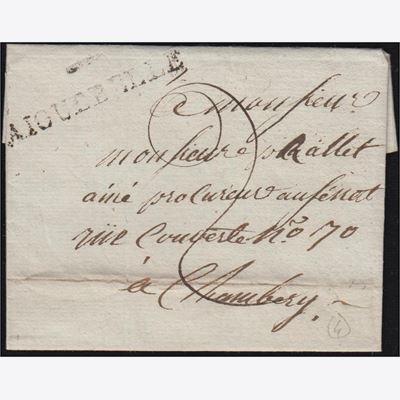 AIGUEBELLE
a monsieur
monsieur Rallet
ainé procureur au sénat
rüe Couverte N.o 70
a Chambery
4